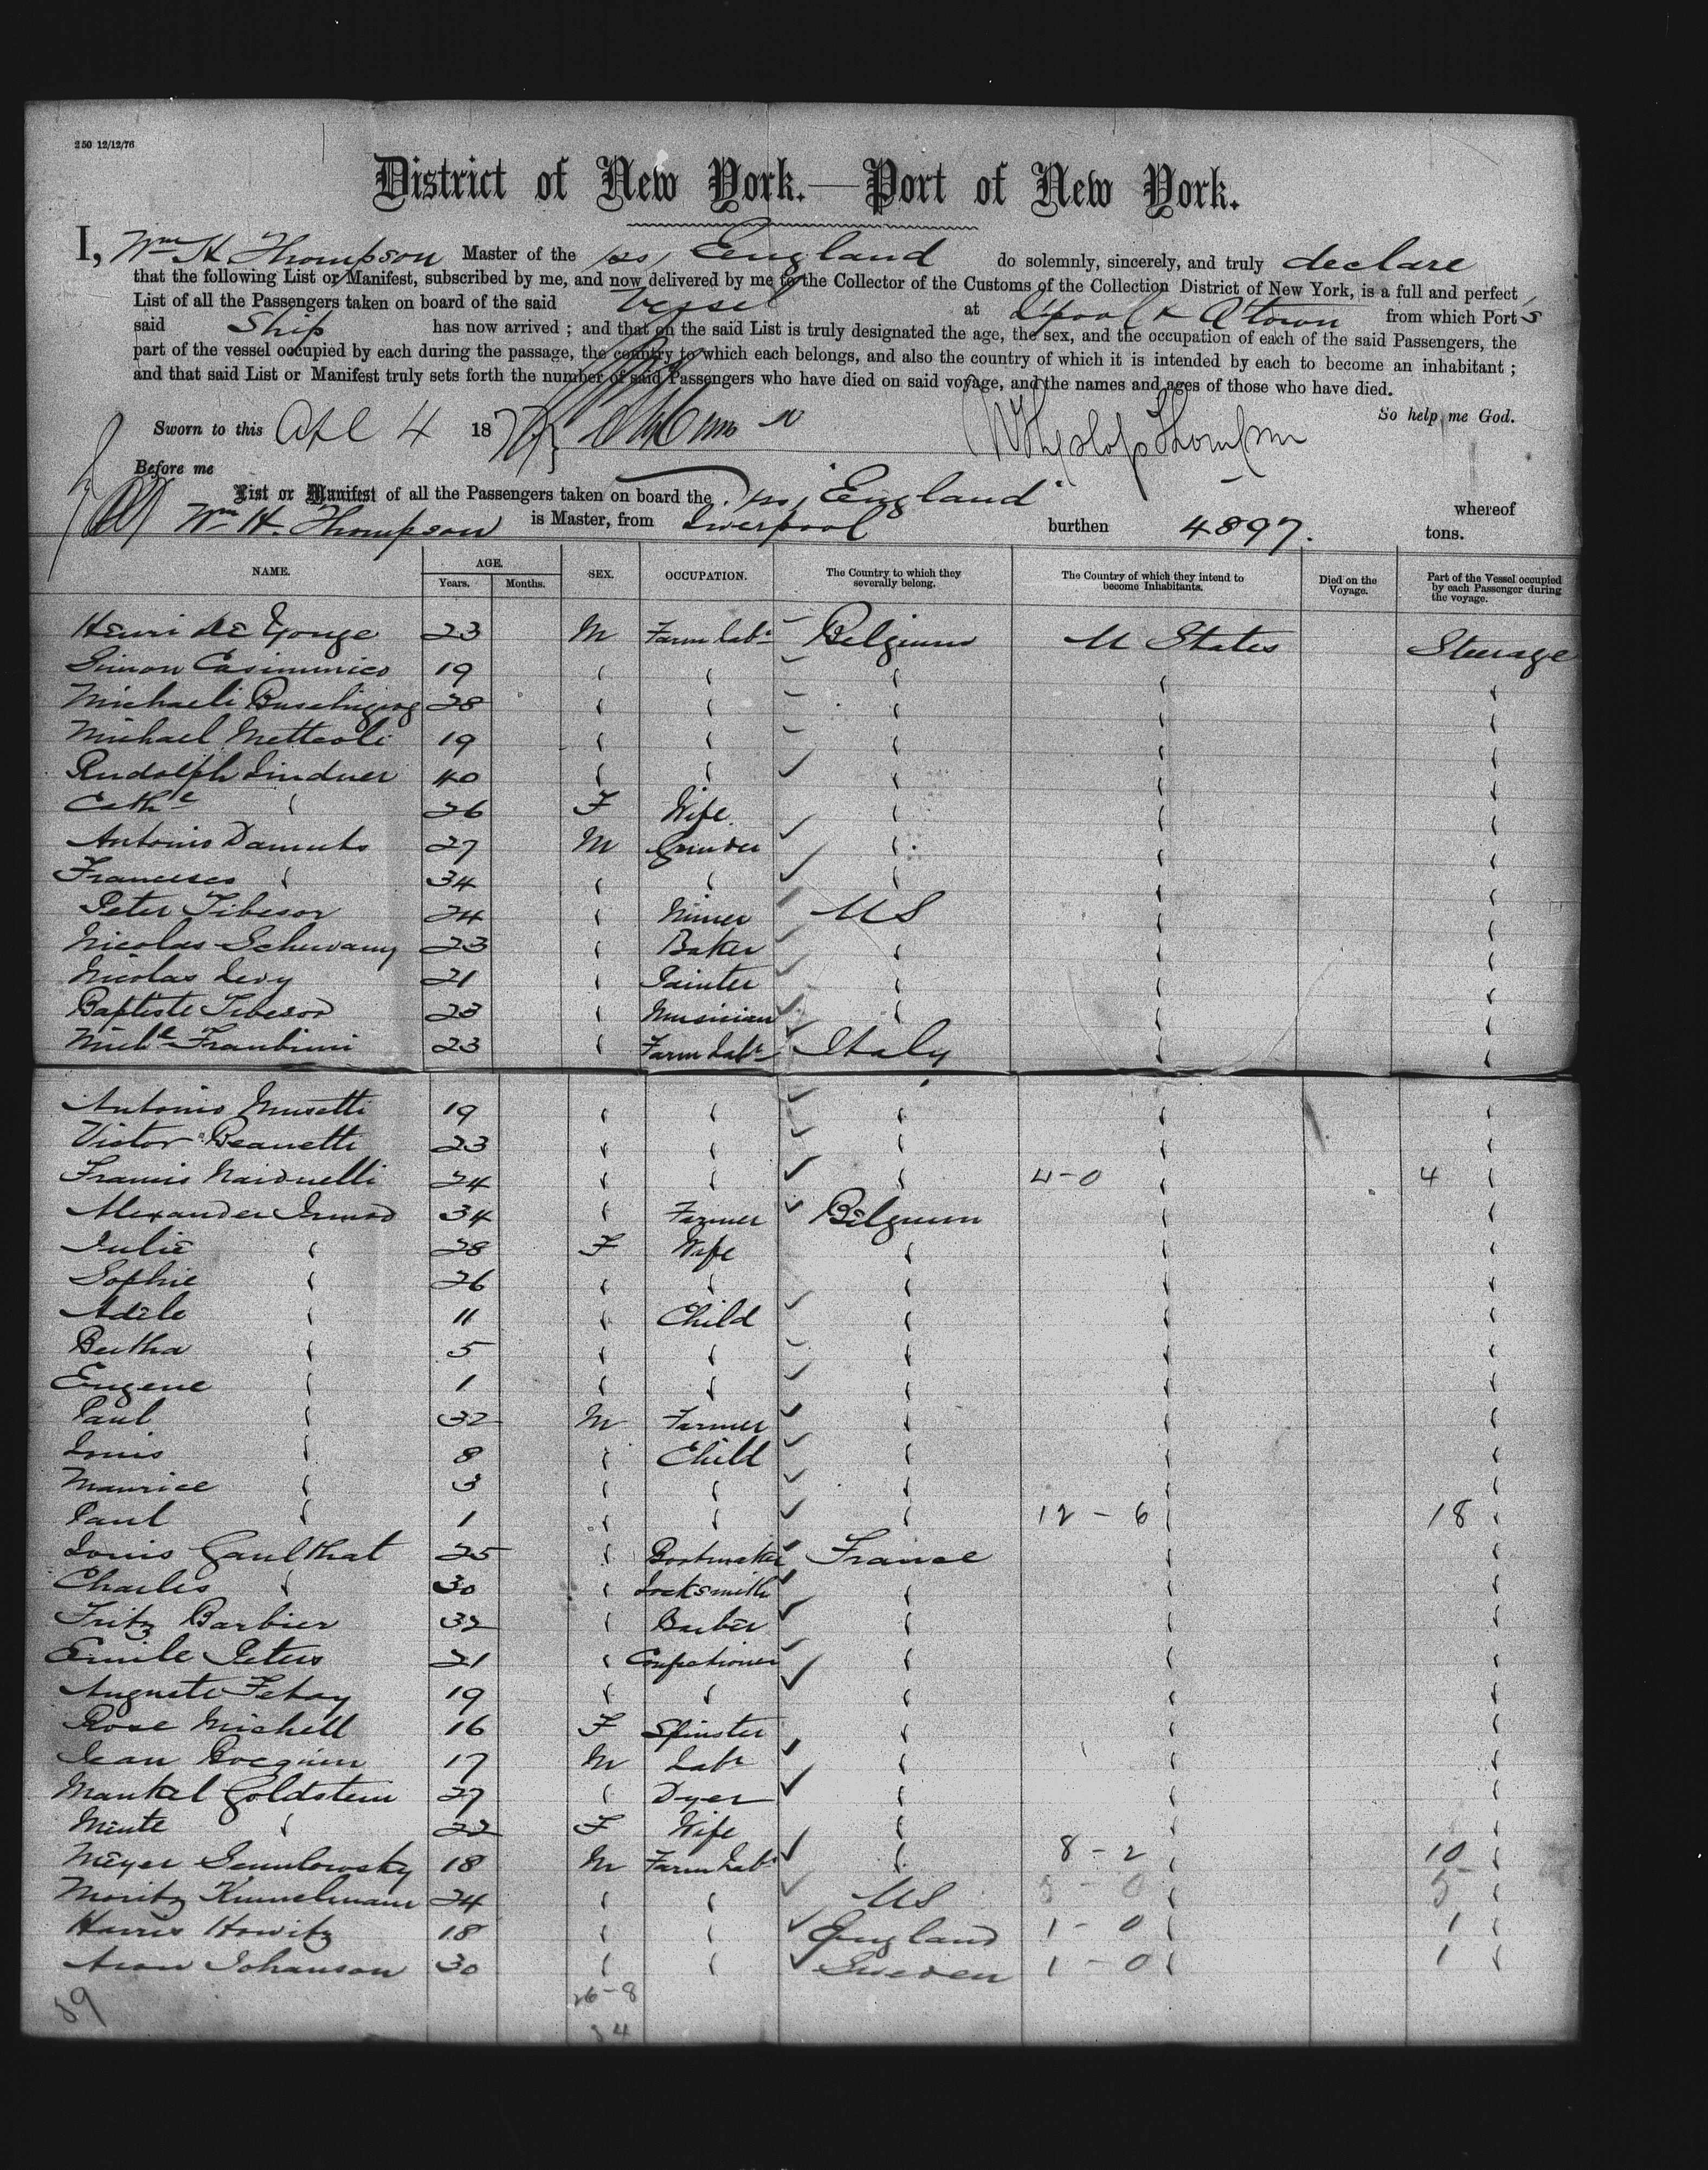 250 12/12/76
District of New York.—Port of New York.
I, Wm H Thompson Master of the ss, England do solemnly, sincerely, and truly declare
that the following List or Manifest, subscribed by me, and now delivered by me to the Collector of the Customs of the Collection District of New York, is a full and perfect
List of all the Passengers taken on board of the said Vessel at L'pool & Q'town from which Ports
said Ship has now arrived ; and that on the said List is truly designated the age, the sex, and the occupation of each of the said Passengers, the
part of the vessel occupied by each during the passage, the country to which each belongs, and also the country of which it is intended by each to become an inhabitant ;
and that said List or Manifest truly sets forth the number of said Passengers who have died on said voyage, and the names and ages of those who have died.
So help me God.
Sworn to this Apl 4 187 Thompson
Before me
List or Manifest of all the Passengers taken on board the ss, "England" whereof
Wm H. Thompson is Master, from Liverpool burthen 4897. tons.
NAME. AGE. Years. Months. SEX. OCCUPATION. The Country to which they severally belong. The Country of which they intend to become Inhabitants. Died on the Voyage. Part of the Vessel occupied by each Passenger during the voyage.
Henri de Yonge 23 M Farm Labr Belgium U States Steerage
Simon Casimmico 19 " " " " "
Michaeli 28 " " " " "
Michael Mettcoli 19 " " " " "
Rudolph Lindner 40 " " " " "
Cathe " 26 F Wife " " "
Antonio Damuts 27 M Grinder " " "
Francesco " 34 " " " " "
Peter Tibesor 24 " Miner US " "
Nicolas Schwamy 23 " Baker " " "
Nicolas Levy 21 " Painter " " "
Baptiste Tibesor 23 " Musician " " "
Michl Franbini 23 " Farm Labr Italy " "
Antonio Musetti 19 " " " " "
Victor Beanetti 23 " " " " "
Francis Naidnelli 24 " " " 4-0 " 4 "
Alexander 34 " Farmer Belgium " "
Julie " 28 F Wife " " "
Sophie " 26 " " " " "
Adele " 11 " Child " " "
Bertha " 5 " " " " "
Eugene " 1 " " " " "
Paul " 32 M Farmer " " "
Louis " 8 " Child " " "
Maurice " 3 " " " " "
Paul " 1 " " " 12-6 " 18 "
Louis Gaulthat 25 " Bootmaker France " "
Charles " 30 " Locksmith " " "
Fritz Barbier 32 " Barber " " "
Emile Peters 21 " Confectioner " " "
Auguste Fehay 19 " " " " "
Rose Michell 16 F Spinster " " "
Jean Bocquin 17 M Labr " " "
Mankel Goldstein 27 " Dyer " " "
Minte " 22 F Wife " " "
Meyer Semlowsky 18 M Farm Labr " 8-2 " 10 "
Moritz Kimmelmann 24 " " US 5-0 " 5 "
Harris Howitz 18 " " England 1-0 " 1 "
Aron Johanson 30 " " Sweden 1-0 " 1 "
26-8
39 34